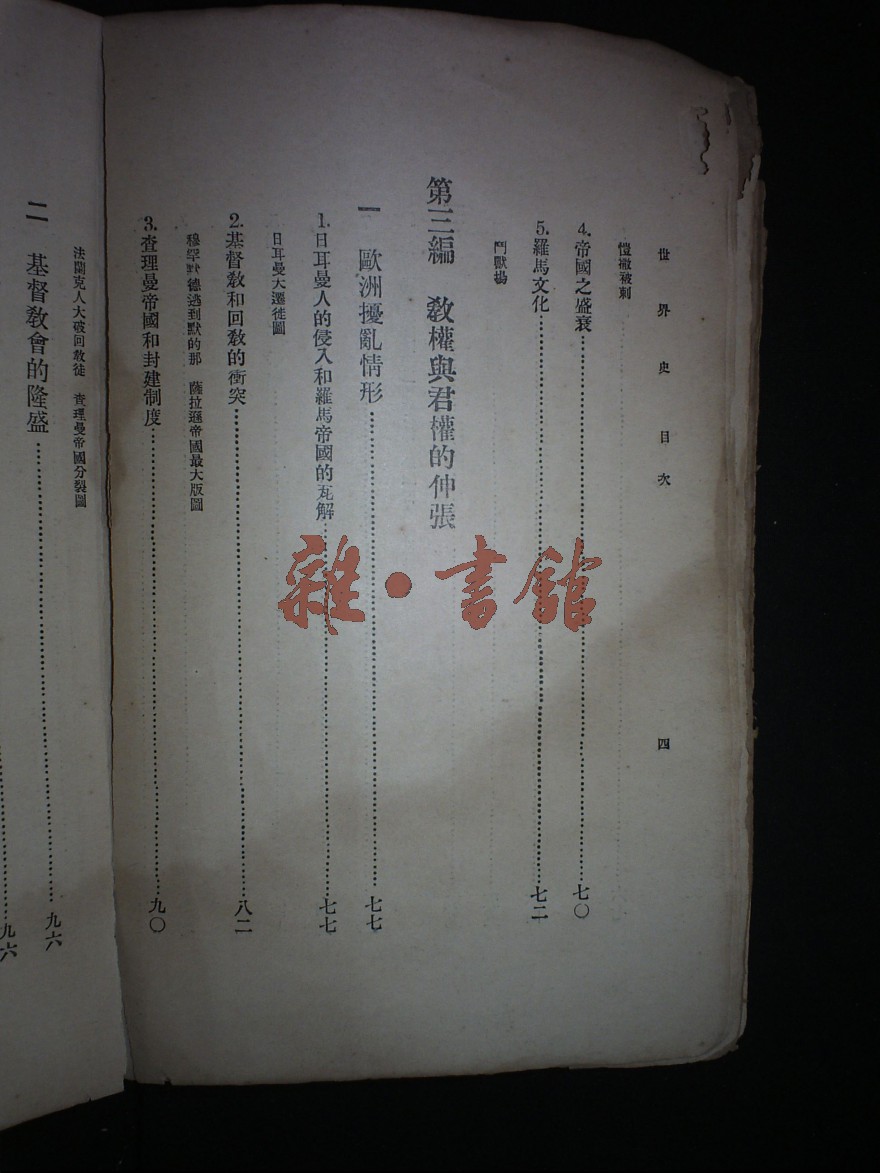 世界史目次 四
愷撒被刺
4. 帝國之盛衰……七〇
5. 羅馬文化……七二
鬥獸場
第三編 教權與君權的伸張
一 歐洲擾亂情形……七七
1. 日耳曼人的侵入和羅馬帝國的瓦解……七七
日耳曼大遷徙圖
2. 基督教和回教的衝突……八二
穆罕默德逃到默的那 薩拉遜帝國最大版圖
3. 查理曼帝國和封建制度……九〇
法蘭克人大破回教徒 查理曼帝國分裂圖
二 基督教會的隆盛……九六
九六
雜·書館